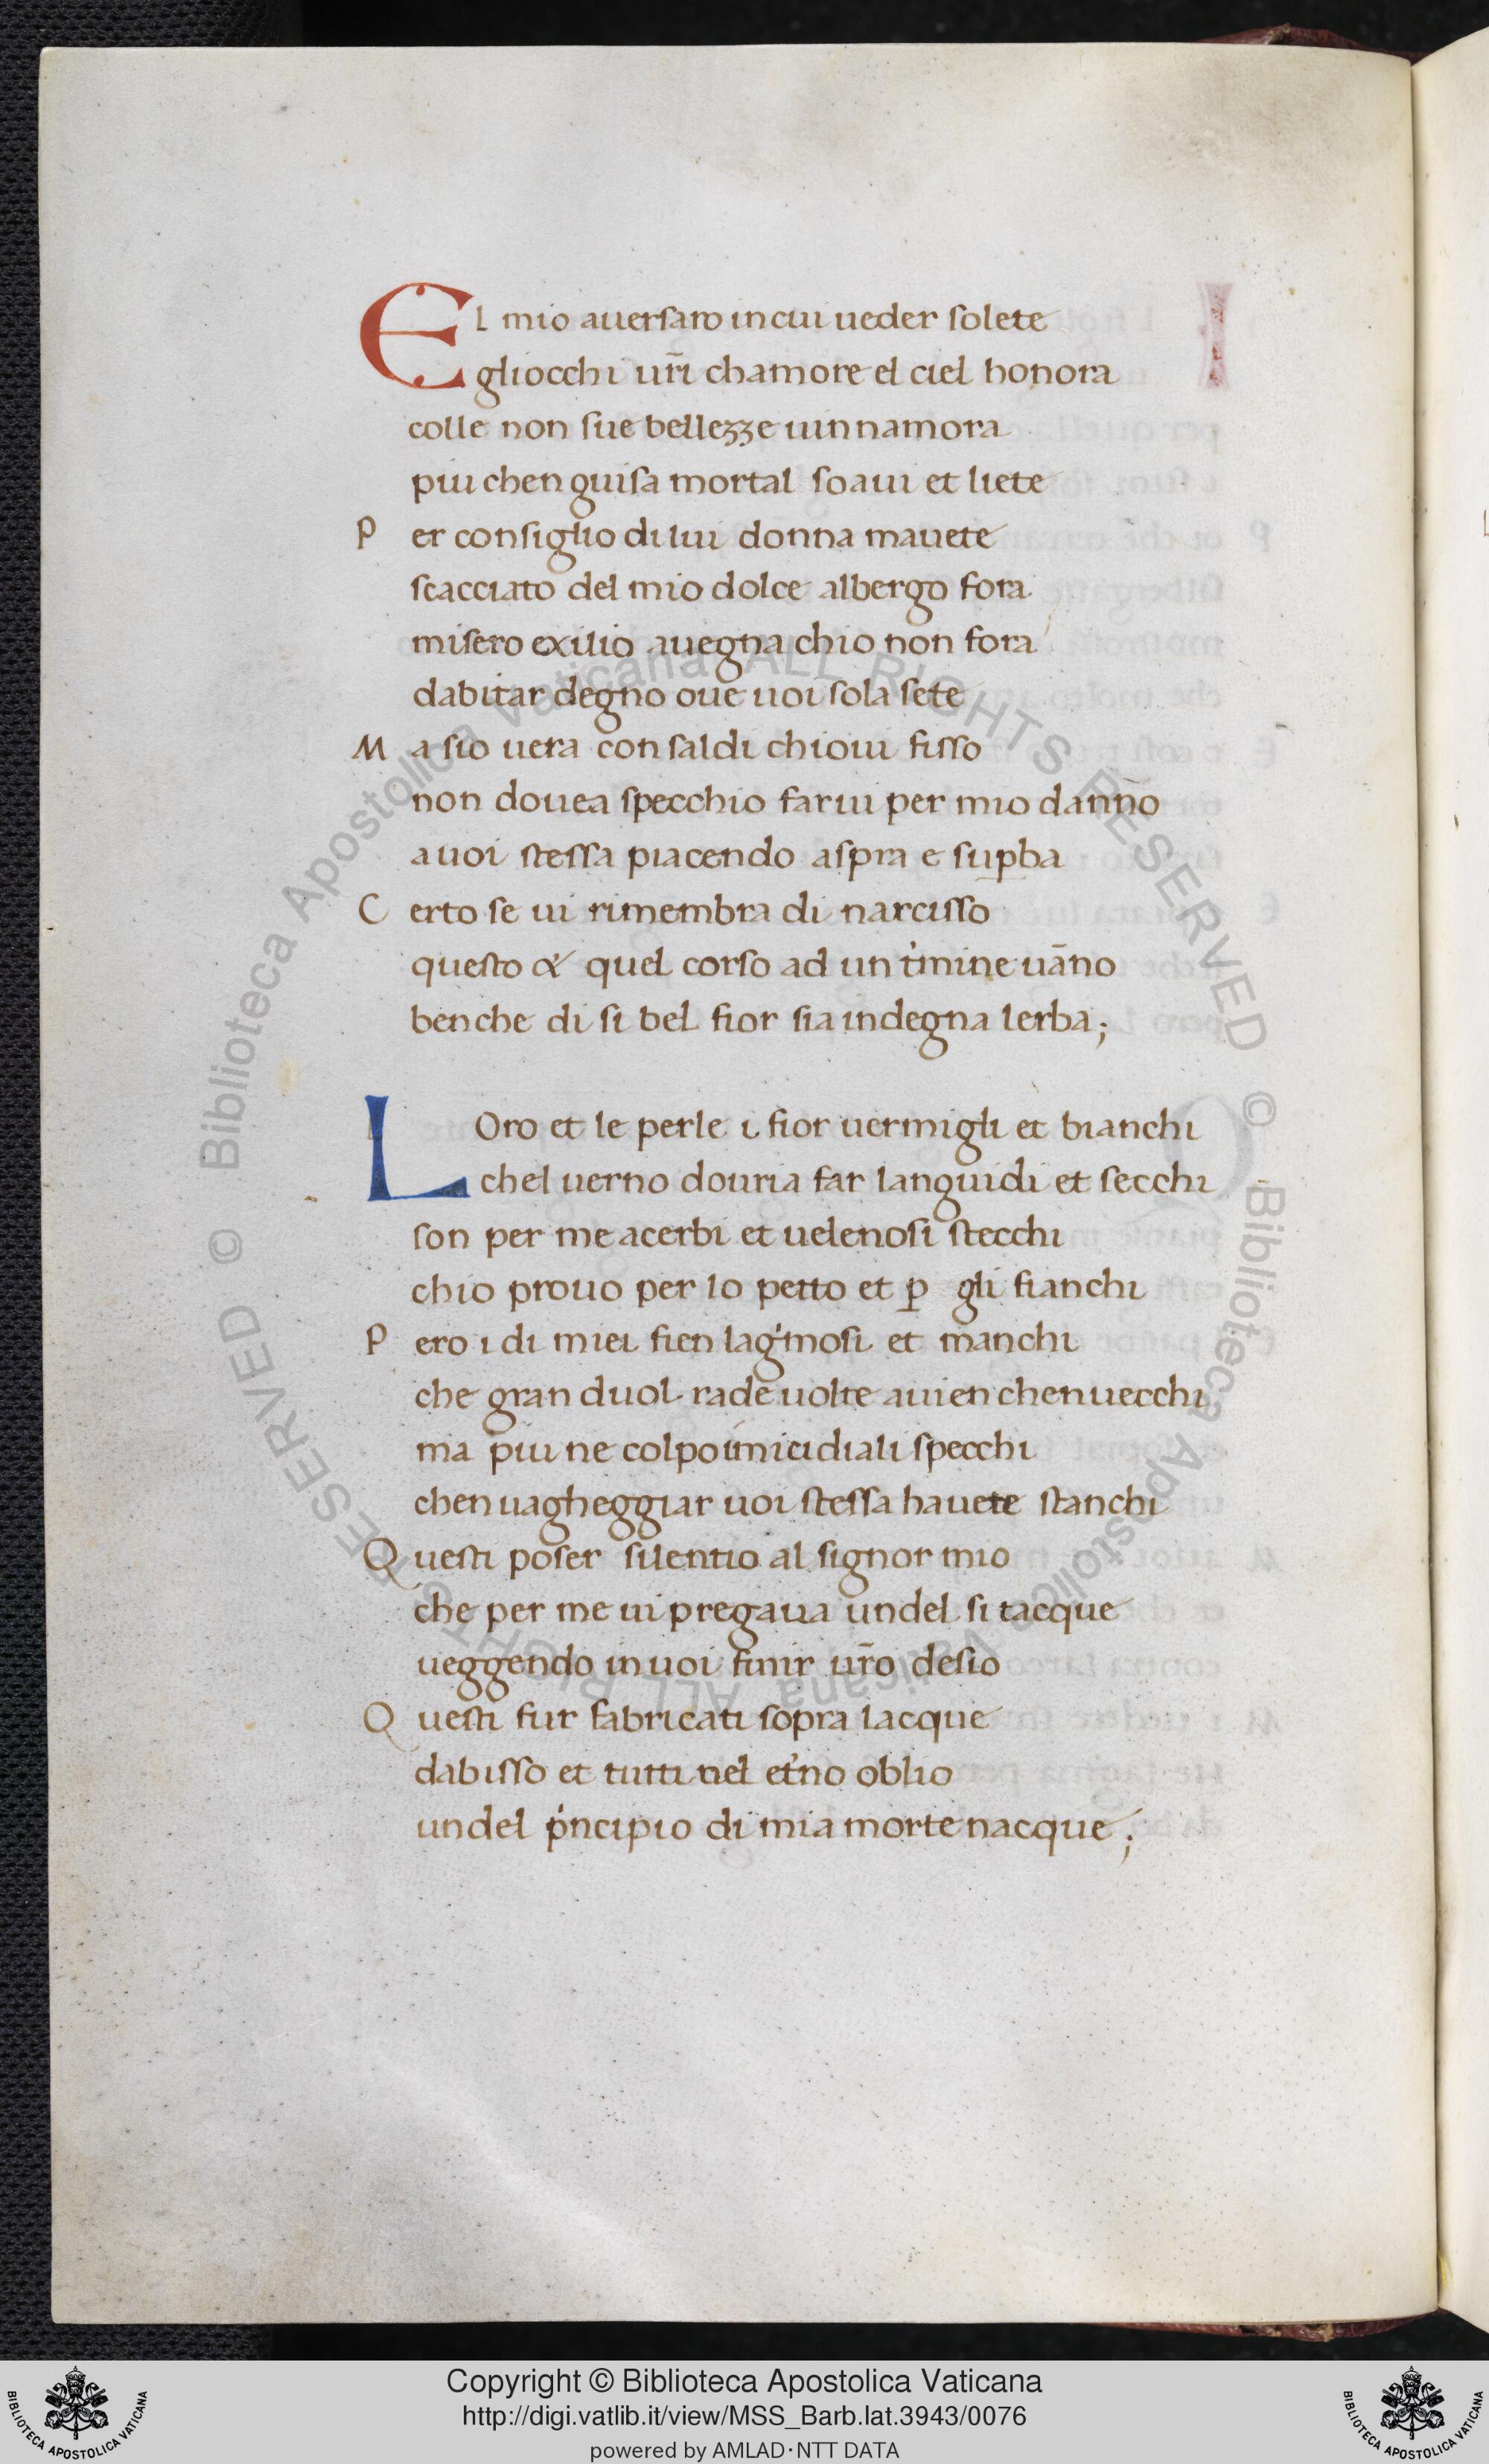 El mio auersaro in cui ueder solete
gliocchi ur̃i chamore el ciel honora
colle non sue bellezze uinnamora
piu chen guisa mortal soaui et liete
Per consiglio di lui donna mauete
scacciato del mio dolce albergo fora
misero exilio auegna chio non fora
dabitar degno oue uoi sola sete
Ma sio uera con saldi chioui fisso
non douea specchio farui per mio danno
a uoi stessa piacendo aspra e sup̱ba
Certo se ui rimembra di narcisso
questo & quel corso ad un t'mine uāno
benche di si bel fior sia indegna lerba;
LOro et le perle i fior uermigli et bianchi
chel uerno douria far languidi et secchi
son per me acerbi et uelenosi stecchi
chio prouo per lo petto et p̱ gli fianchi
Pero i di miei fien lag'mosi et manchi
che gran duol rade uolte auien chenuecchi
ma piu ne colpo imicidiali specchi
chen uagheggiar uoi stessa hauete stanchi
Questi poser silentio al signor mio
che per me ui pregaua undel si tacque
ueggendo in uoi finir ur̃o desio
Questi fur fabricati sopra lacque
dabisso et tutti nel et'no oblio
undel p'ncipio di mia morte nacque;
Copyright © Biblioteca Apostolica Vaticana
http://digi.vatlib.it/view/MSS_Barb.lat.3943/0076
powered by AMLAD·NTT DATA
BIBLIOTECA APOSTOLICA VATICANA
BIBLIOTECA APOSTOLICA VATICANA
© Biblioteca Apostolica Vaticana ALL RIGHTS RESERVED © Biblioteca Apostolica Vaticana ALL RIGHTS RESERVED